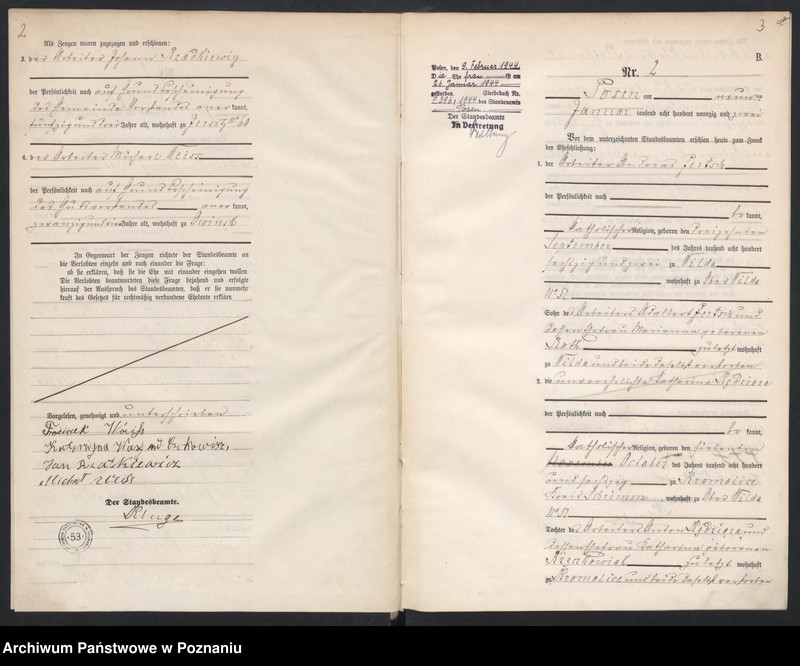 2
Als Zeugen waren zugezogen und erschienen:
3. der Arbeiter Johann Rzadkiewicz
der Persönlichkeit nach auf Grund Bescheinigung
des Gemeinde Vorstandes aner kannt,
Jahre alt, wohnhaft zu Jersitz No 60
4. der Arbeiter Michael Weiss
der Persönlichkeit nach auf Grund Bescheinigung
des Gutsvorstandes aner kannt,
Jahre alt, wohnhaft zu
In Gegenwart der Zeugen richtete der Standesbeamte an
die Verlobten einzeln und nach einander die Frage:
ob sie erklären, daß sie die Ehe mit einander eingehen wollen
Die Verlobten beantworteten diese Frage bejahend und erfolgte
hierauf der Ausspruch des Standesbeamten, daß er sie nunmehr
kraft des Gesetzes für rechtmäßig verbundene Eheleute erkläre.
Vorgelesen, genehmigt und unterschrieben
Der Standesbeamte.
Kluge
53
3
B.
Posen, den 9. Februar 1944
Die Ehefrau ist am
26. Januar 1944
gestorben. Sterbebuch Nr.
1944 des Standesamts
Posen
Der Standesbeamte
In Vertretung
Nr. 2
Posen am neun
Januar tausend acht hundert neunzig und zwei
Vor dem unterzeichneten Standesbeamten erschien heute zum Zweck
der Eheschließung:
1. der Arbeiter Andreas Pertsch
der Persönlichkeit nach
be kannt,
katholischer Religion, geboren den dreizehnten
September des Jahres tausend acht hundert
sechzig und zwei zu Wilda
wohnhaft zu Ober Wilda
No 51
Sohn des Arbeiters Adalbert Pertsch und
dessen Ehefrau Marianna geborenen
Roth zuletzt wohnhaft
zu Wilda und beide daselbst verstorben
2. die unverehelichte Katharina
der Persönlichkeit nach
be kannt,
katholischer Religion, geboren den siebenten
November October des Jahres tausend acht hundert
und sechzig zu Kromolice
Kreis Schrimm wohnhaft zu Ober Wilda
No 51
Tochter des Arbeiters Anton und
dessen Ehefrau Katharina geborenen
zuletzt wohnhaft
zu Kromolice und beide daselbst verstorben
Archiwum Państwowe w Poznaniu